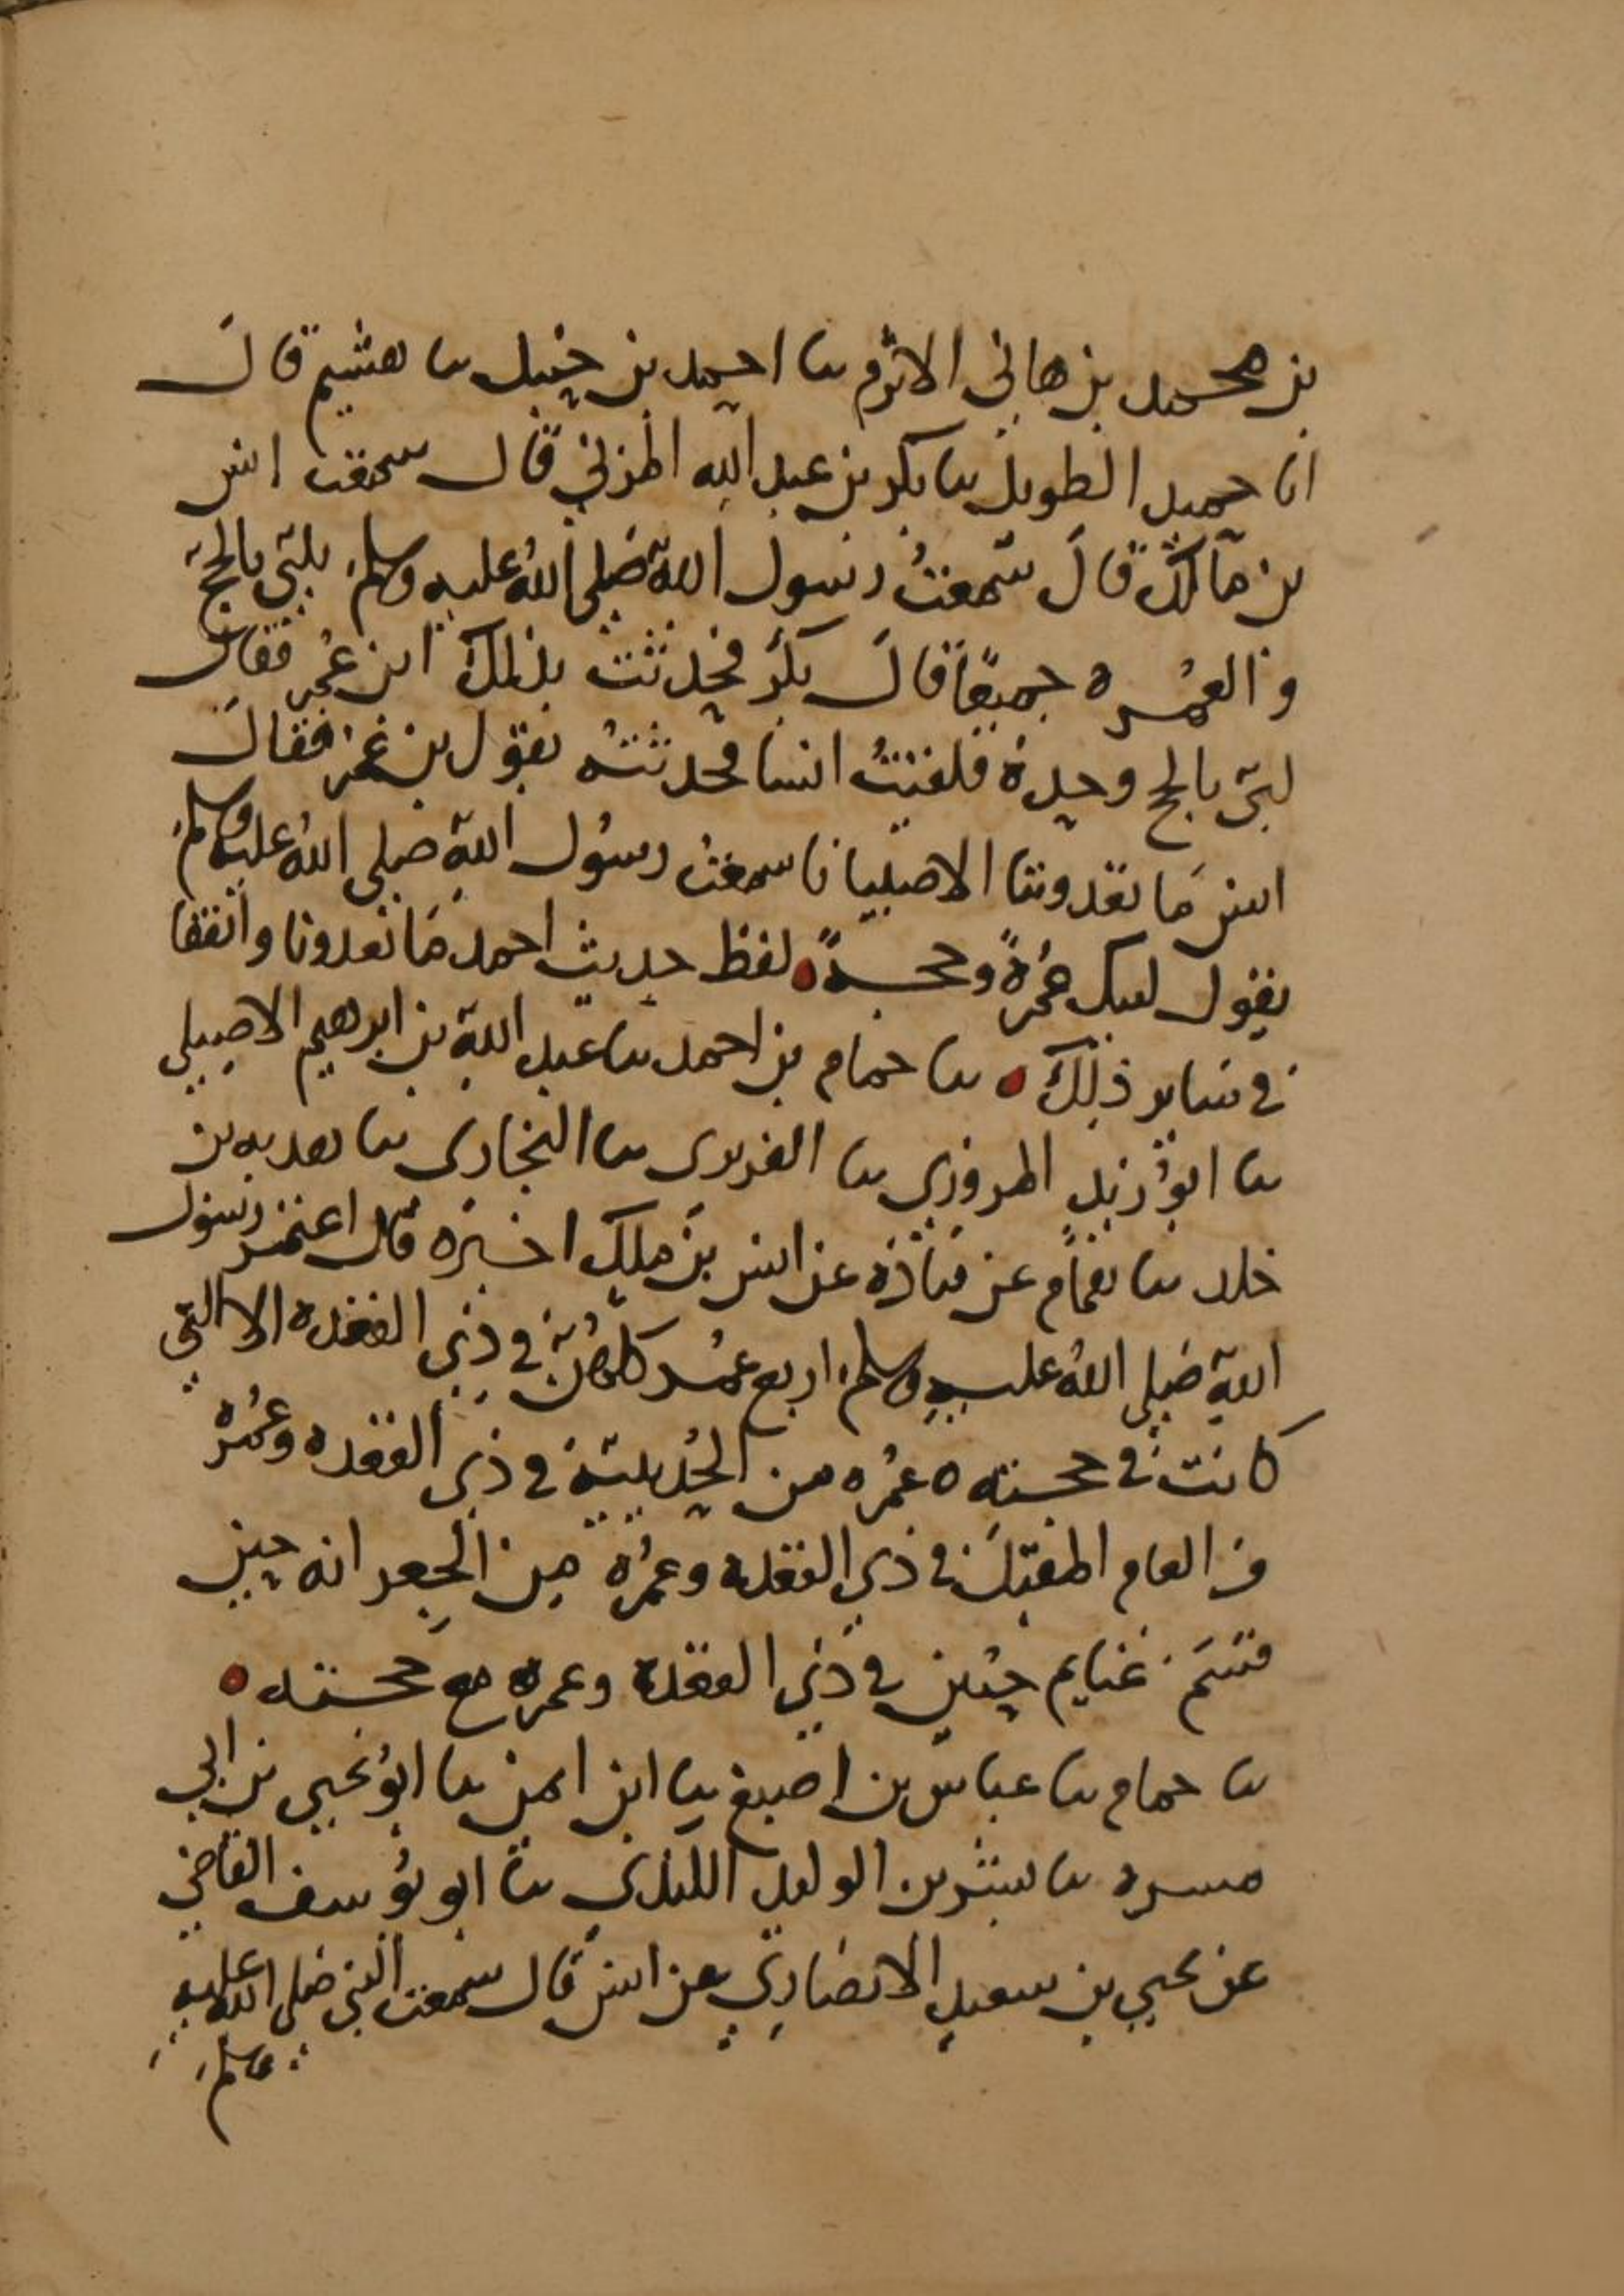 بن محمد بن هاني الاثرم ثنا احمد بن حنبل ثنا هشيم قال
انا حميد الطويل ثنا بكر بن عبد الله المزني قال سمعت انس
بن مالك قال سمعت رسول الله صلى الله عليه وسلم يلبي بالحج
والعمره جميعا قال بكر فحدثت بذلك ابن عمر فقال
لبى بالحج وحده فلقيت انسا فحدثته بقول بن عمر فقال
انس ما تعدوننا الا صبيانا سمعت رسول الله صلى الله عليه وسلم
يقول لبيك عمرة وحجة لفظ حديث احمد ما تعدونا واتفقا
في ساير ذلك ثنا حمام بن احمد ثنا عبد الله بن ابرهيم الاصيلي
ثنا ابو زيد المروزي ثنا الفربري ثنا البخاري ثنا هدبه بن
خلد ثنا همام عن قتادة عن انس بن ملك اخبره قال اعتمر رسول
الله صلى الله عليه وسلم اربع عمر كلهن في ذي القعدة الا التي
كانت في حجته عمره من الحديبية في ذي القعده وعمرة
من العام المقبل في ذي القعدة وعمرة من الجعرانه حيث
قسم غنايم حنين في ذي القعدة وعمرة مع حجته
ثنا حمام ثنا عباس بن اصبغ ثنا ابن ايمن ثنا ابو يحيى بن ابي
مسره ثنا بشر بن الوليد الكندي ثنا ابو يوسف القاضي
عن يحيى بن سعيد الانصاري عن انس قال سمعت النبي صلى الله عليه
وسلم